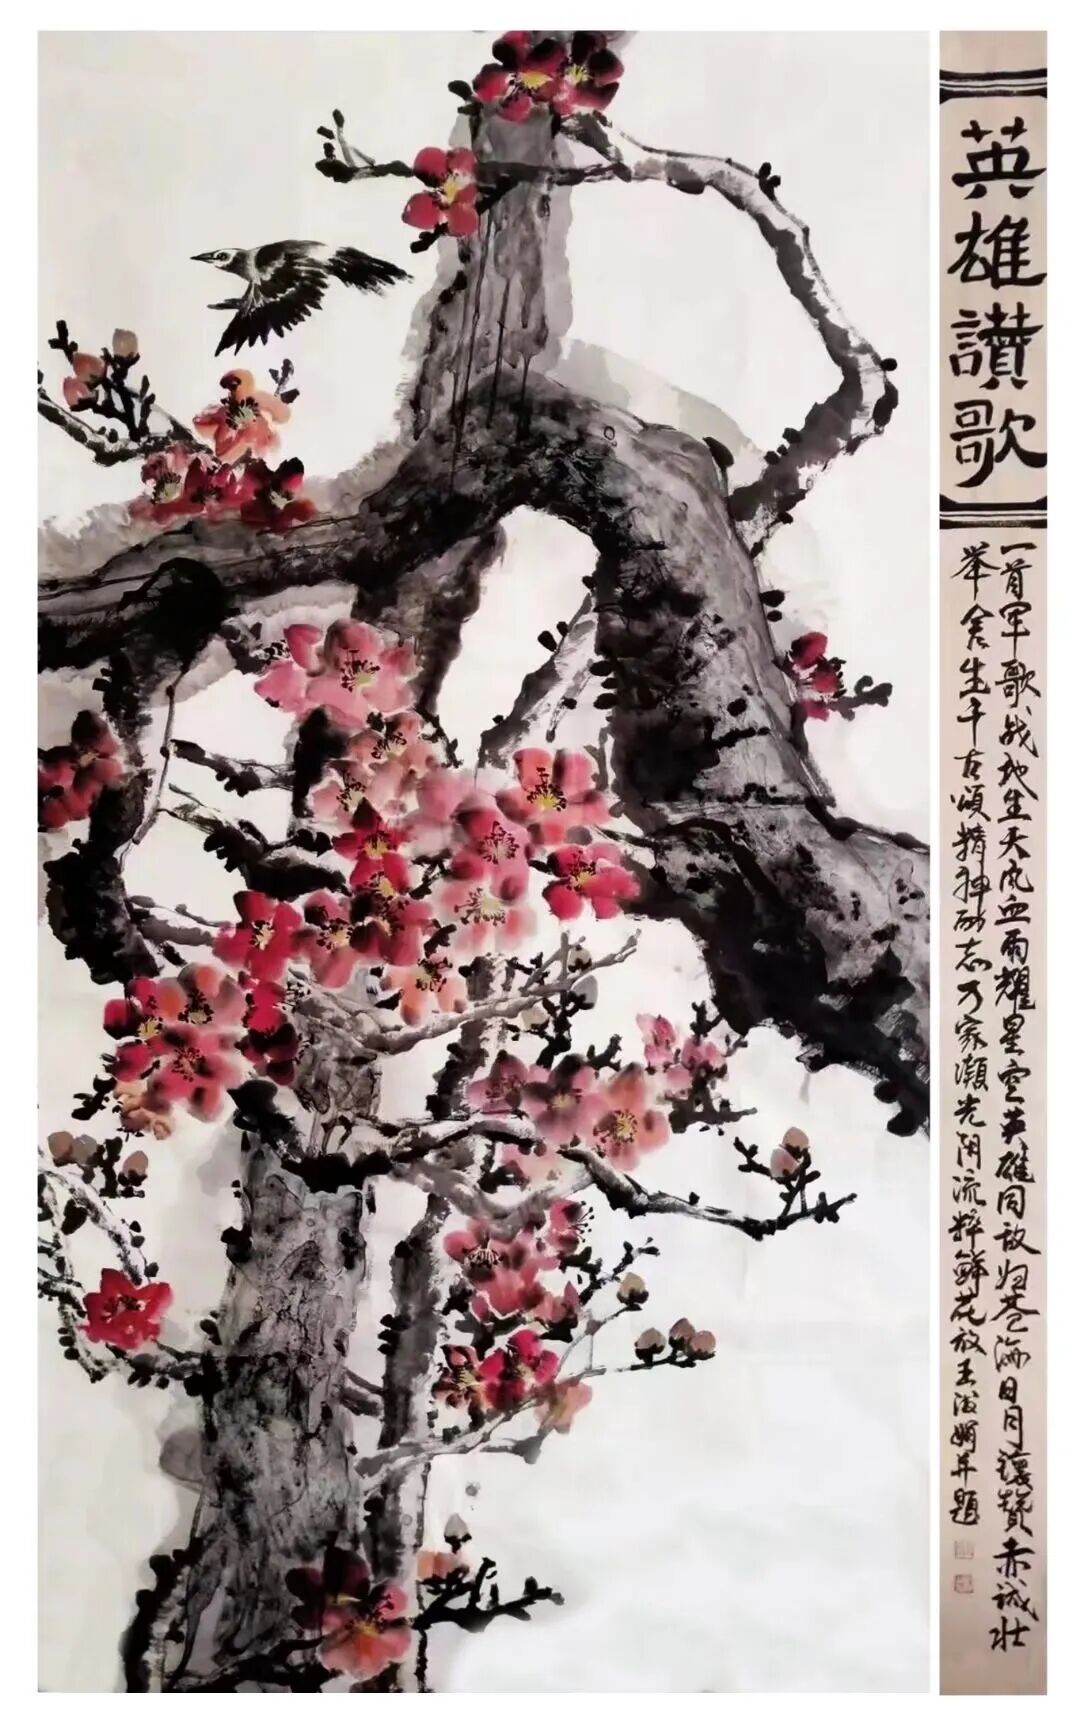 英雄讃歌
一首军歌战地生天风血雨耀星空英雄同敌归苍海日月让赞赤诚壮
举舍生千古颂精神励志乃家濒光阴流粹鲜花放王淑娟并题